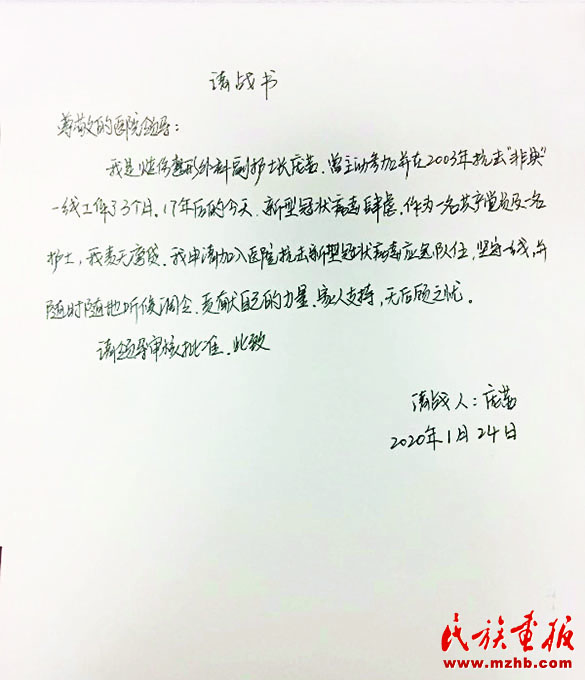 请战书
尊敬的医院领导：
我是烧伤整形外科副护士长庞茜、曾主动参加并在2003年抗击"非典"
一线工作了3个月、17年后的今天、新型冠状病毒肆虐、作为一名共产党员及一名
护士，我责无旁贷、我申请加入医院抗击新型冠状病毒应急队伍，坚守一线，并
随时随地听候调令、贡献自己的力量、家人支持，无后顾之忧。
请领导审核批准、此致
请战人：庞茜
2020年1月24日
民族画报
www.mzhb.com